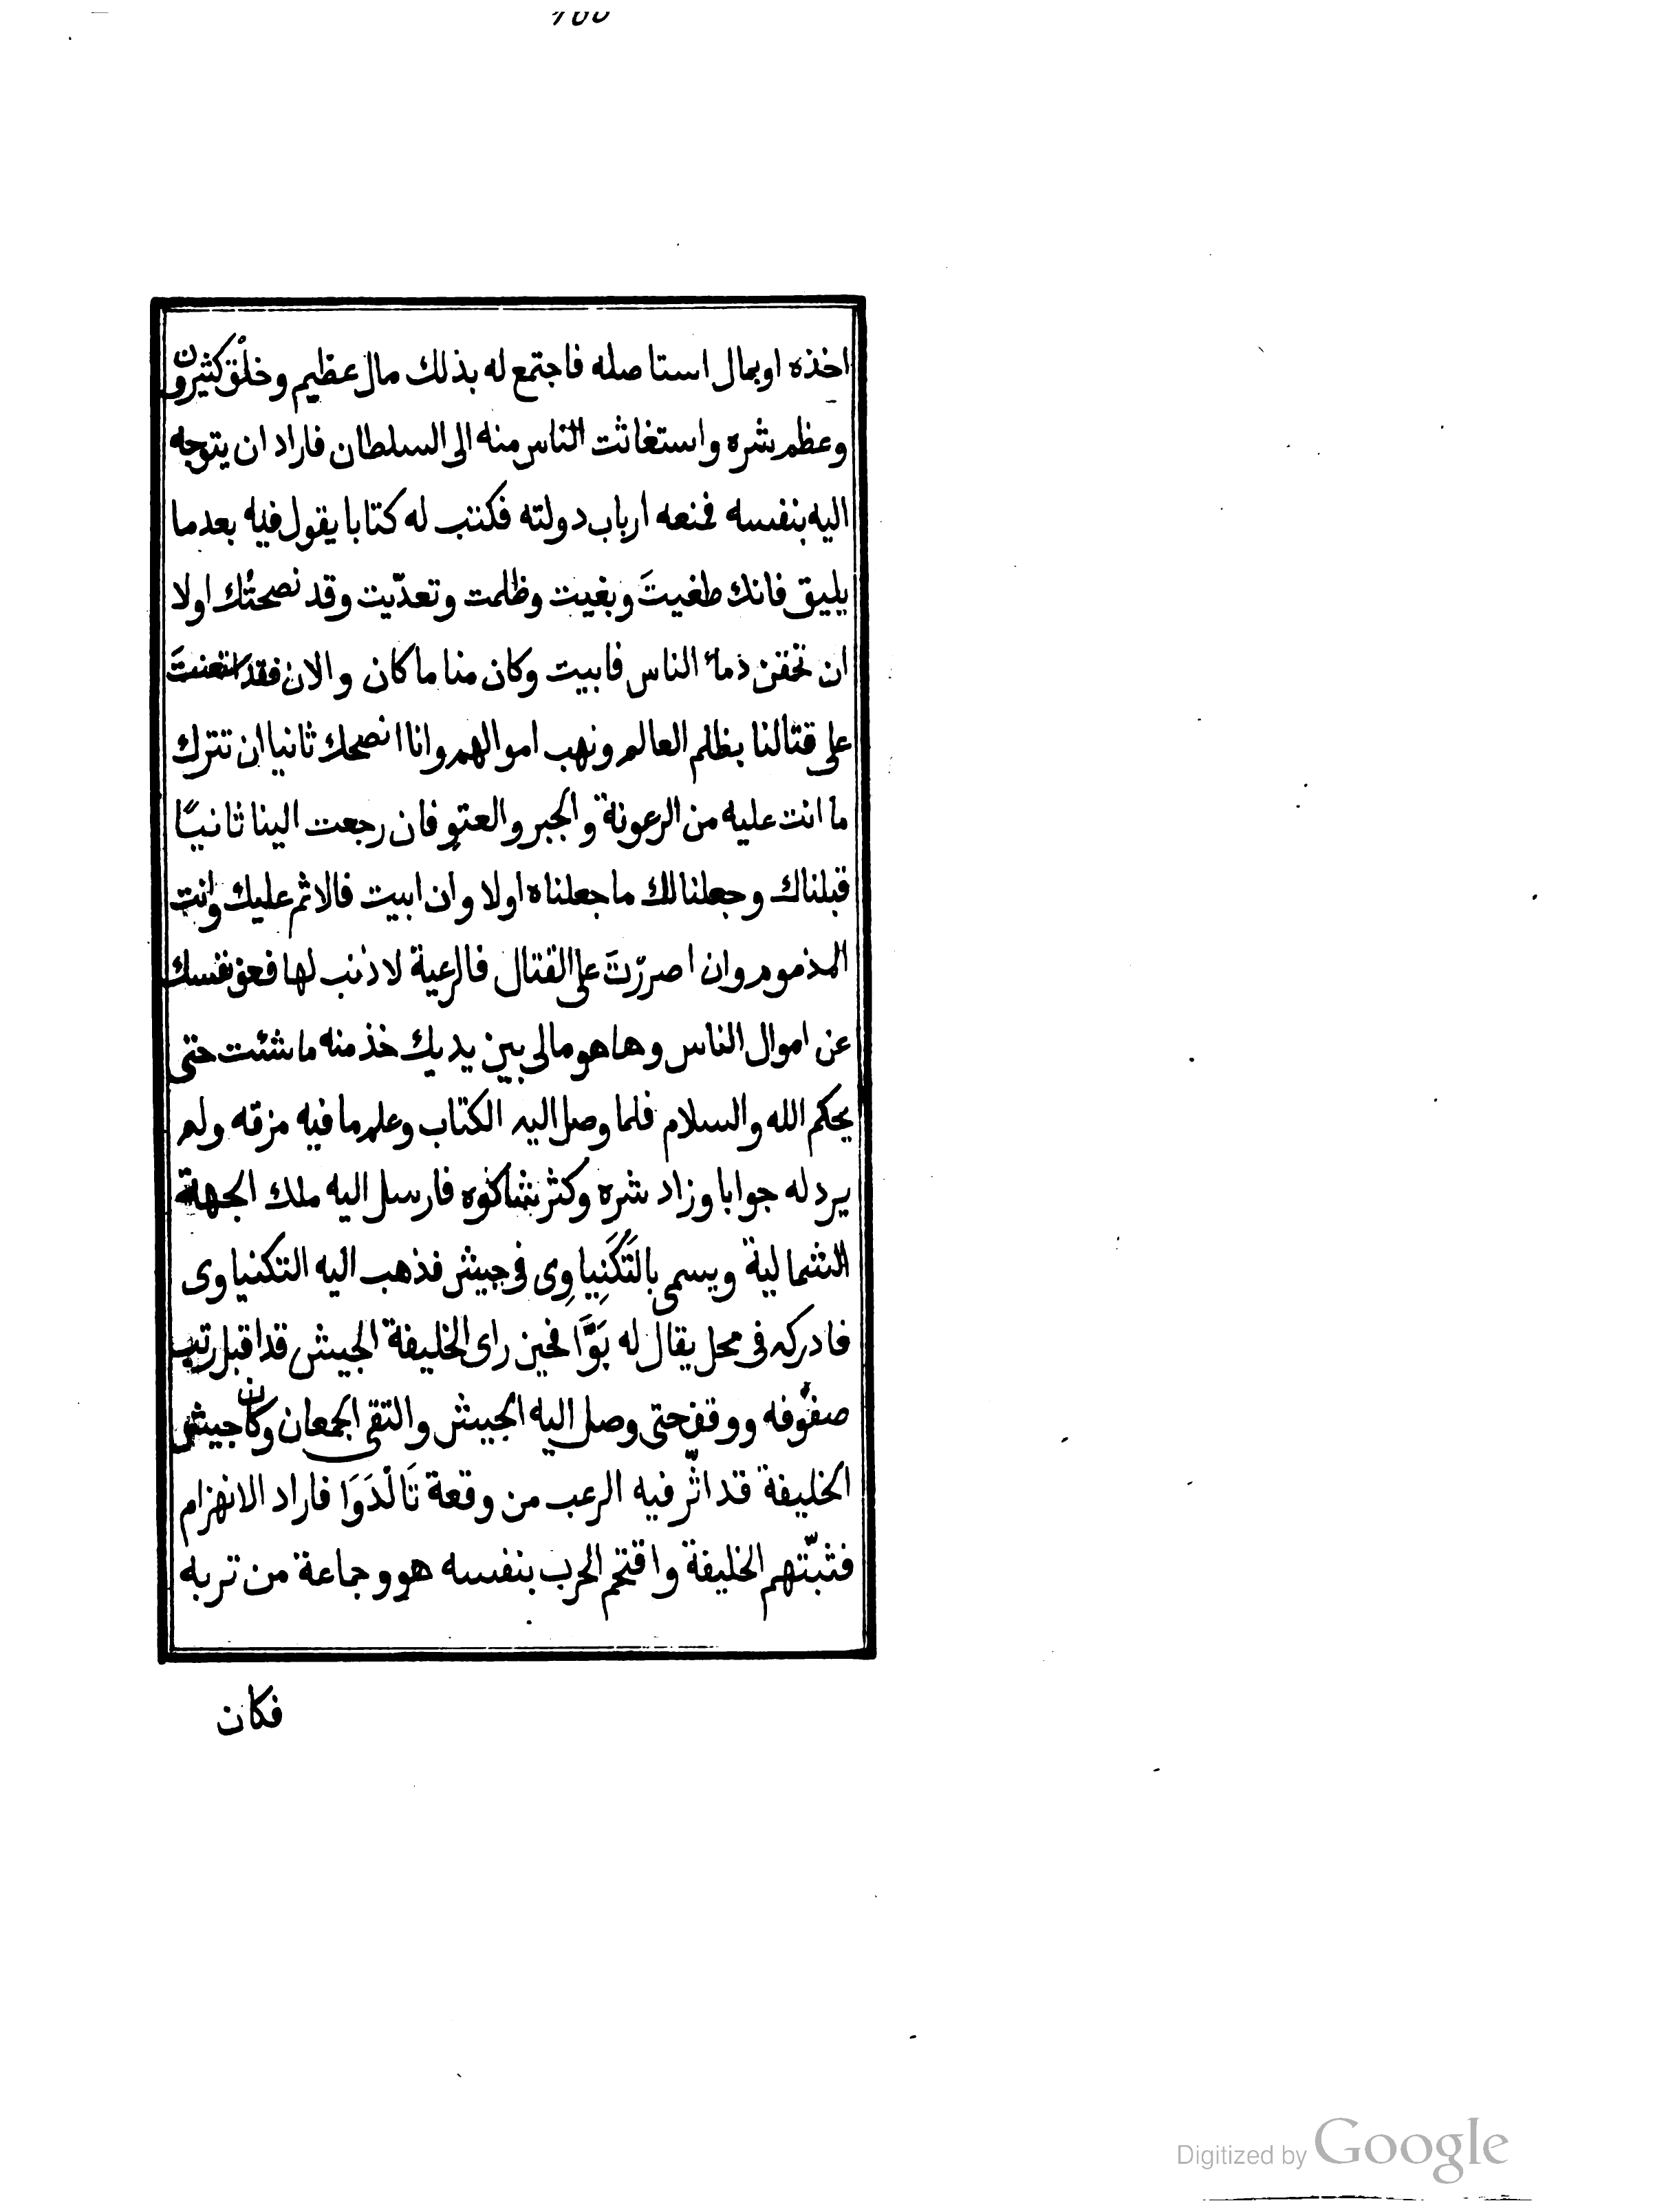 اخذه اوبمال استاصله فاجتمع له بذلك مال عظيم وخلْق كثيرون
وعظم شره واستغاثت الناس منه الى السلطان فاراد ان يتوجه
اليه بنفسه فمنعه ارباب دولته فكتب له كتابا يقول فيه بعدما
يليق فانك طغيتَ وبغيت وظلمت وتعدّيت وقد نصحتُك اولا
ان تحقن دماء الناس فابيت وكان منا ما كان والان فقد
على قتالنا بظلم العالم ونهب اموالهم وانا انصحك ثانيا ان تترك
ما انت عليه من الرعونة والجبر والعتو فان رجعت الينا ثانيًا
قبلناك وجعلنا لك ما جعلناه اولا وان ابيت فالاثم عليك وانت
المذموم وان اصررتَ على القتال فالرعية لا ذنب لها فعف نفسك
عن اموال الناس وها هو مالى بين يديك خذ منه ما شئت حتى
يحكم الله والسلام فلما وصل اليه الكتاب وعلم ما فيه مزقه ولم
يرد له جوابا وزاد شره وكثر شاكوه فارسل اليه ملك الجهة
الشمالية ويسمى بالتَكَنِياوِى فى جيش فذهب اليه التكنياوى
فادركه فى محل يقال له بَوَّا فحين راى الخليفة الجيش قد اقبل رتب
صفُوفه ووقف حتى وصل اليه الجيش والتقى الجمعان وكان جيش
الخليفة قد اثّر فيه الرعب من وقعة تَالْدَوَا فاراد الانهزام
فثبّتهم الخليفة واقتحم الحرب بنفسه هو وجماعة من تربه
فكان
Digitized by Google